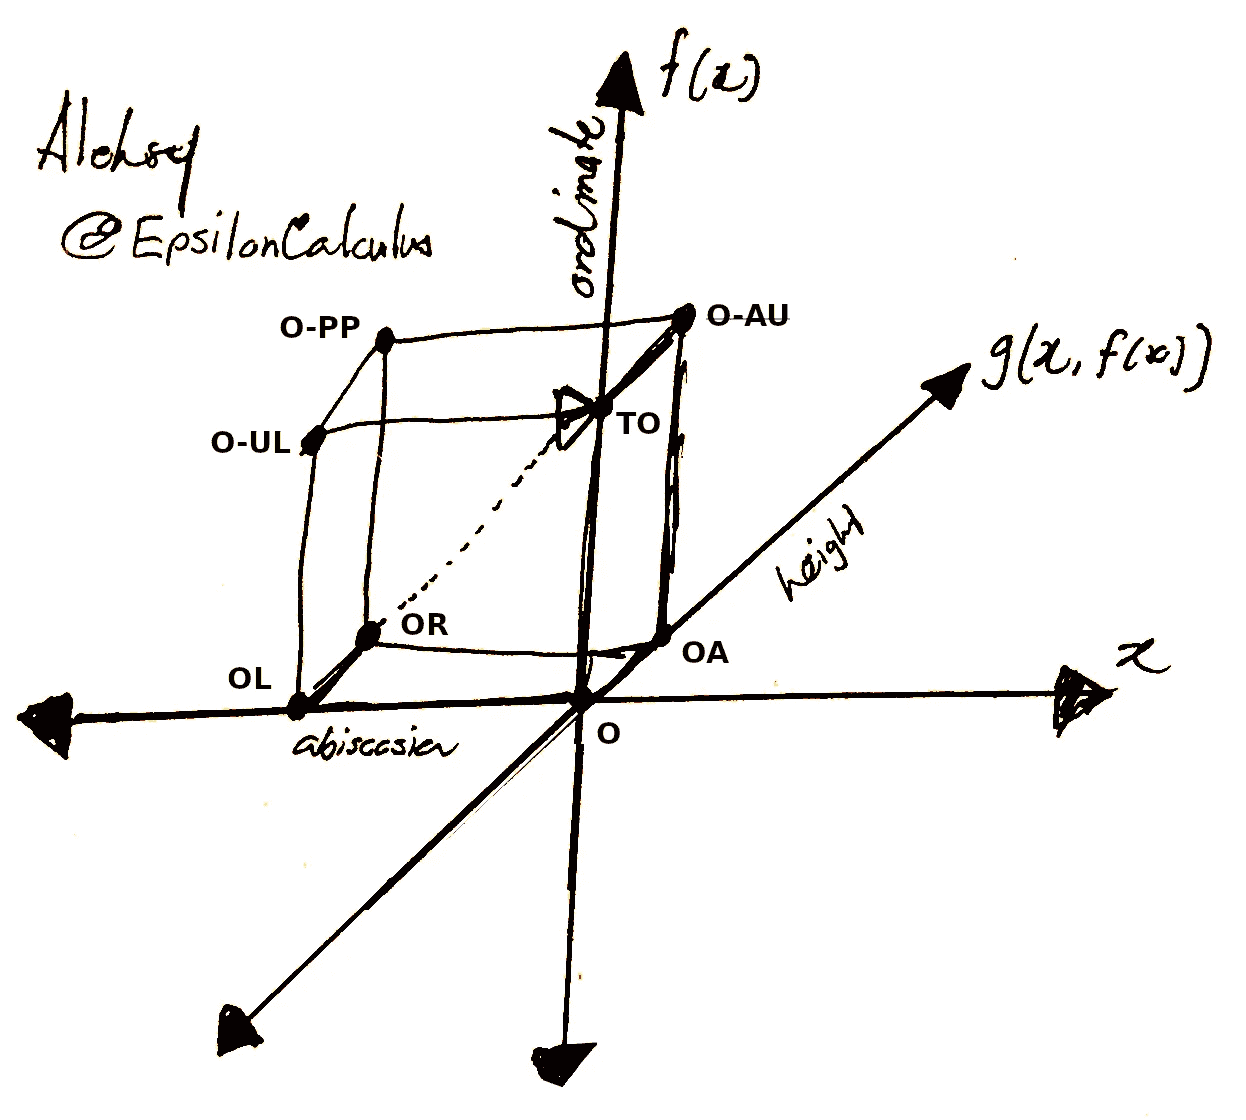 f(x)
Aleksey
@EpsilonCalculus
ordinate
O-PP
O-AU
g(x, f(x))
O-UL
TO
height
OR
OA
x
OL
O
abiscasien